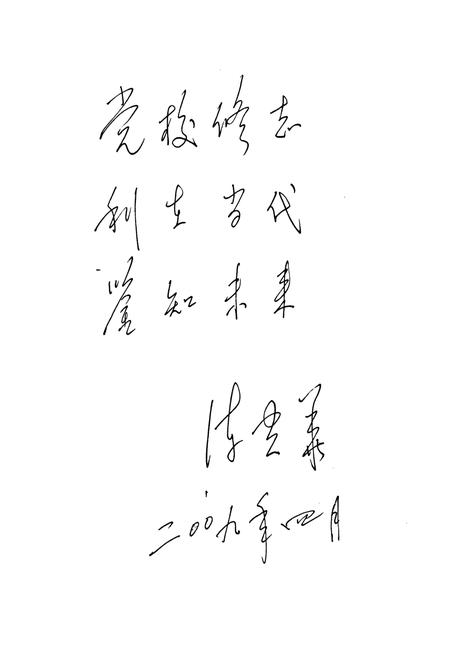 党校修志
利在当代
鉴知未来
二〇〇九年四月